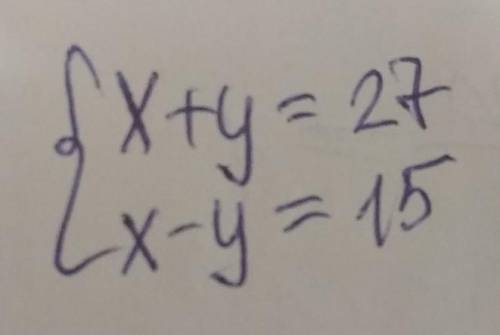 x+y=27
x-y=15